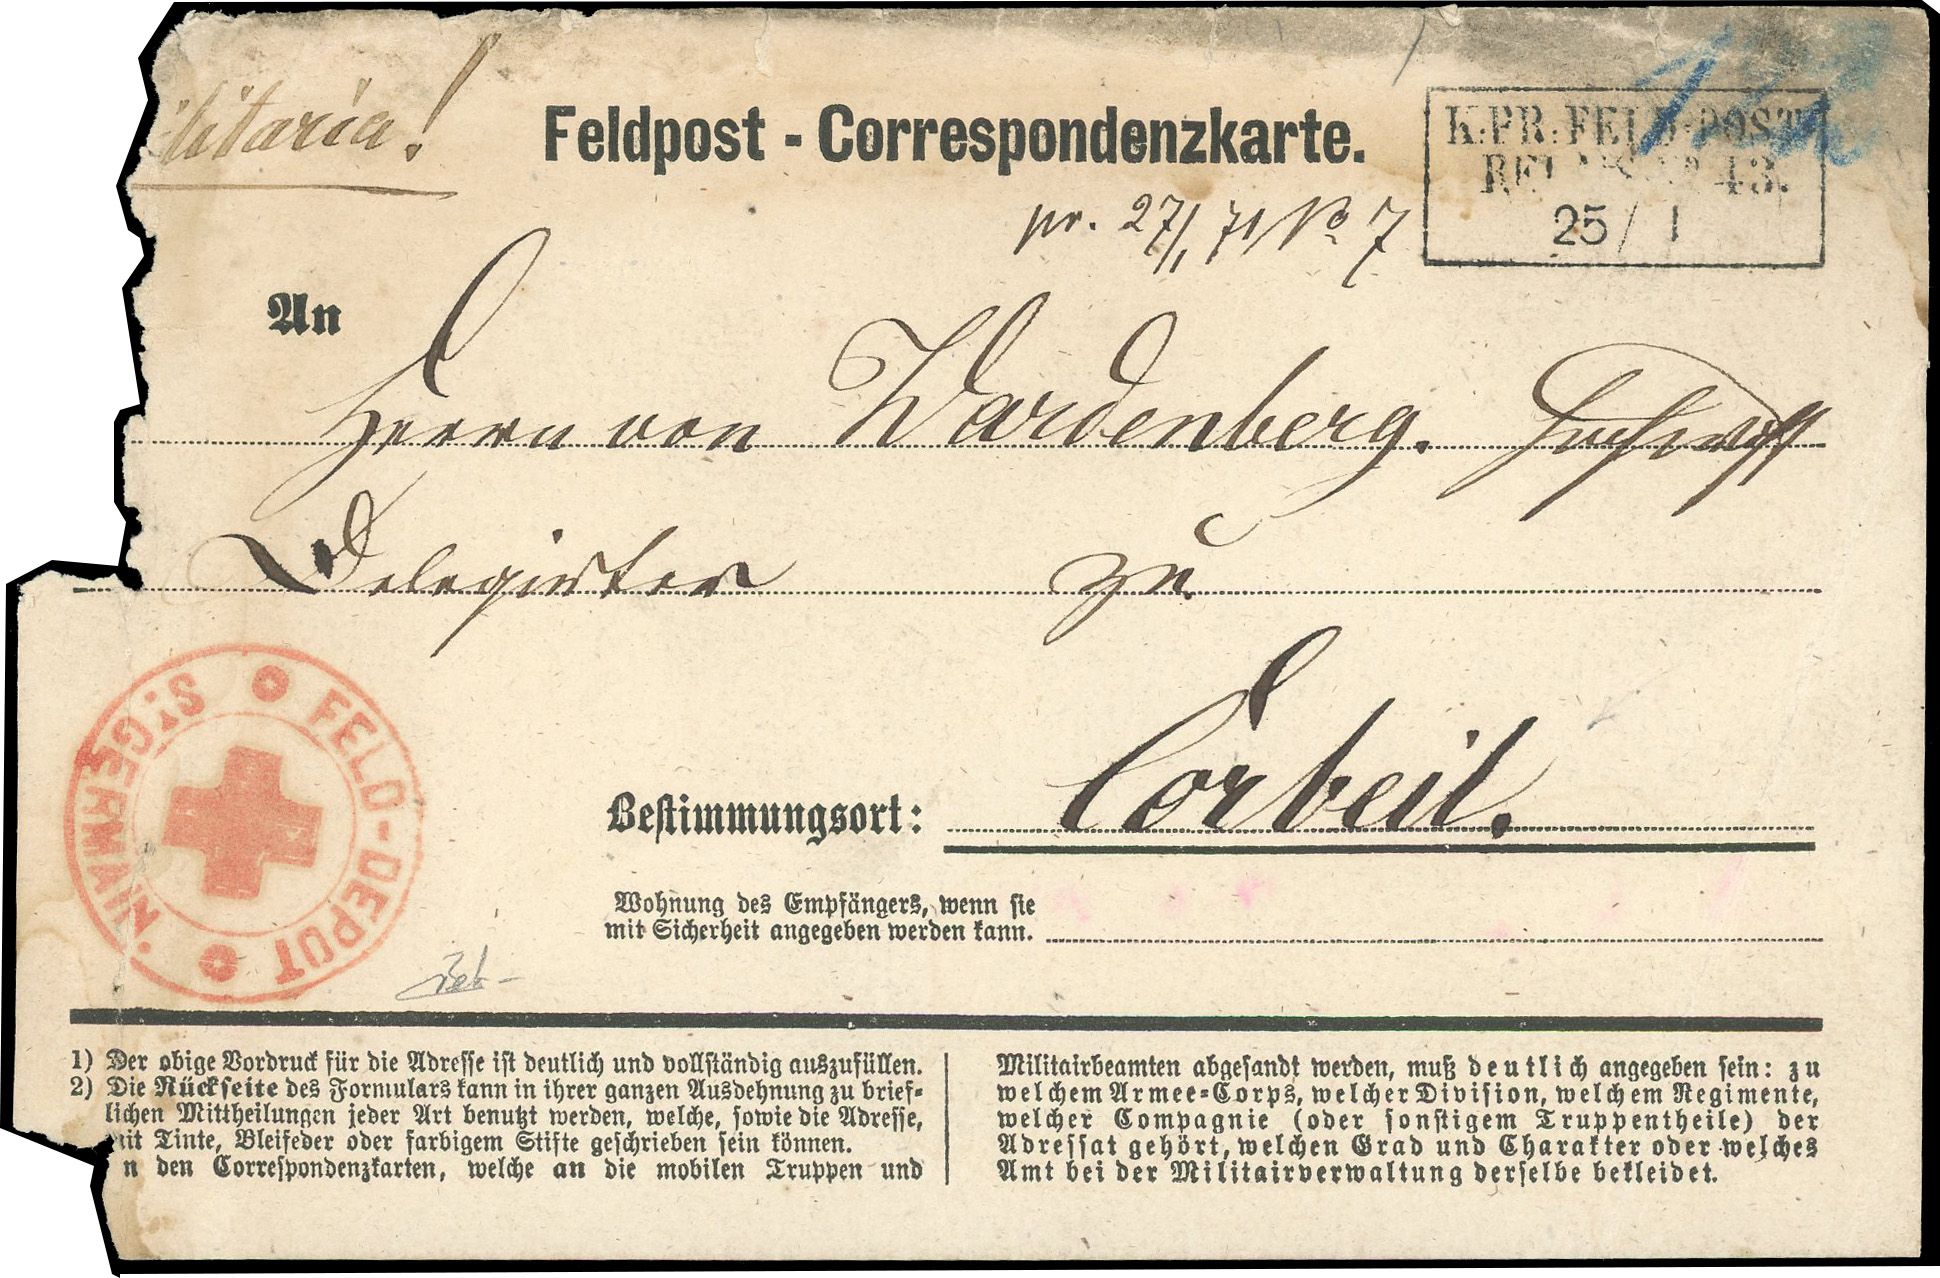 Militaria!
Feldpost - Correspondenzkarte.
K:PR:FELD-POST
RELAIS No 43.
25/ 1
pr. 27/1 71 No 7
An
Herrn von Wardenberg.
Delegirter zu
Corbeil.
Bestimmungsort:
Wohnung des Empfängers, wenn sie
mit Sicherheit angegeben werden kann.
FELD-DEPOT
ST GERMAIN.
1) Der obige Vordruck für die Adresse ist deutlich und vollständig auszufüllen.
2) Die Rückseite des Formulars kann in ihrer ganzen Ausdehnung zu brief-
lichen Mittheilungen jeder Art benutzt werden, welche, sowie die Adresse,
mit Tinte, Bleifeder oder farbigem Stifte geschrieben sein können.
n den Correspondenzkarten, welche an die mobilen Truppen und
Militairbeamten abgesandt werden, muß deutlich angegeben sein: zu
welchem Armee-Corps, welcher Division, welchem Regimente,
welcher Compagnie (oder sonstigem Truppentheile) der
Adressat gehört, welchen Grad und Charakter oder welches
Amt bei der Militairverwaltung derselbe bekleidet.